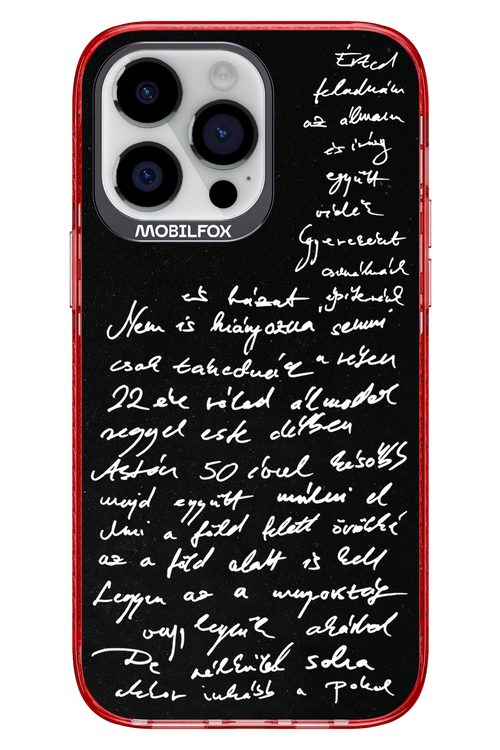 Érted
feladnám
az álmaim
és irány
együtt
vidék
Gyerekeket
csinálnánk
és házat építenénk
Nem is hiányozna semmi
csak a réten
22 éve rólad álmodok
reggel este délben
Aztán 50 évvel később
majd együtt múlni el
Ami a föld felett örökké
az a föld alatt is kell
Legyen az a menyország
vagy legyünk akárhol
De nélküled soha
akkor inkább a pokol
MOBILFOX